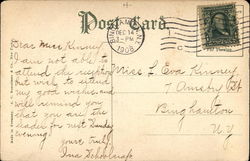 Post Card.
BINGHAMTON
DEC 14
3-PM
1908
Dear Miss Kinney
I am not able to
attend the reception
but wish to extend
my good wishes and
will remind you
that you are the
leader for next Sunday
evening.
Yours truly,
Ina Schoolcraft
Miss L. Eva Kinney
7 Ornsby St
Binghamton
N.Y.